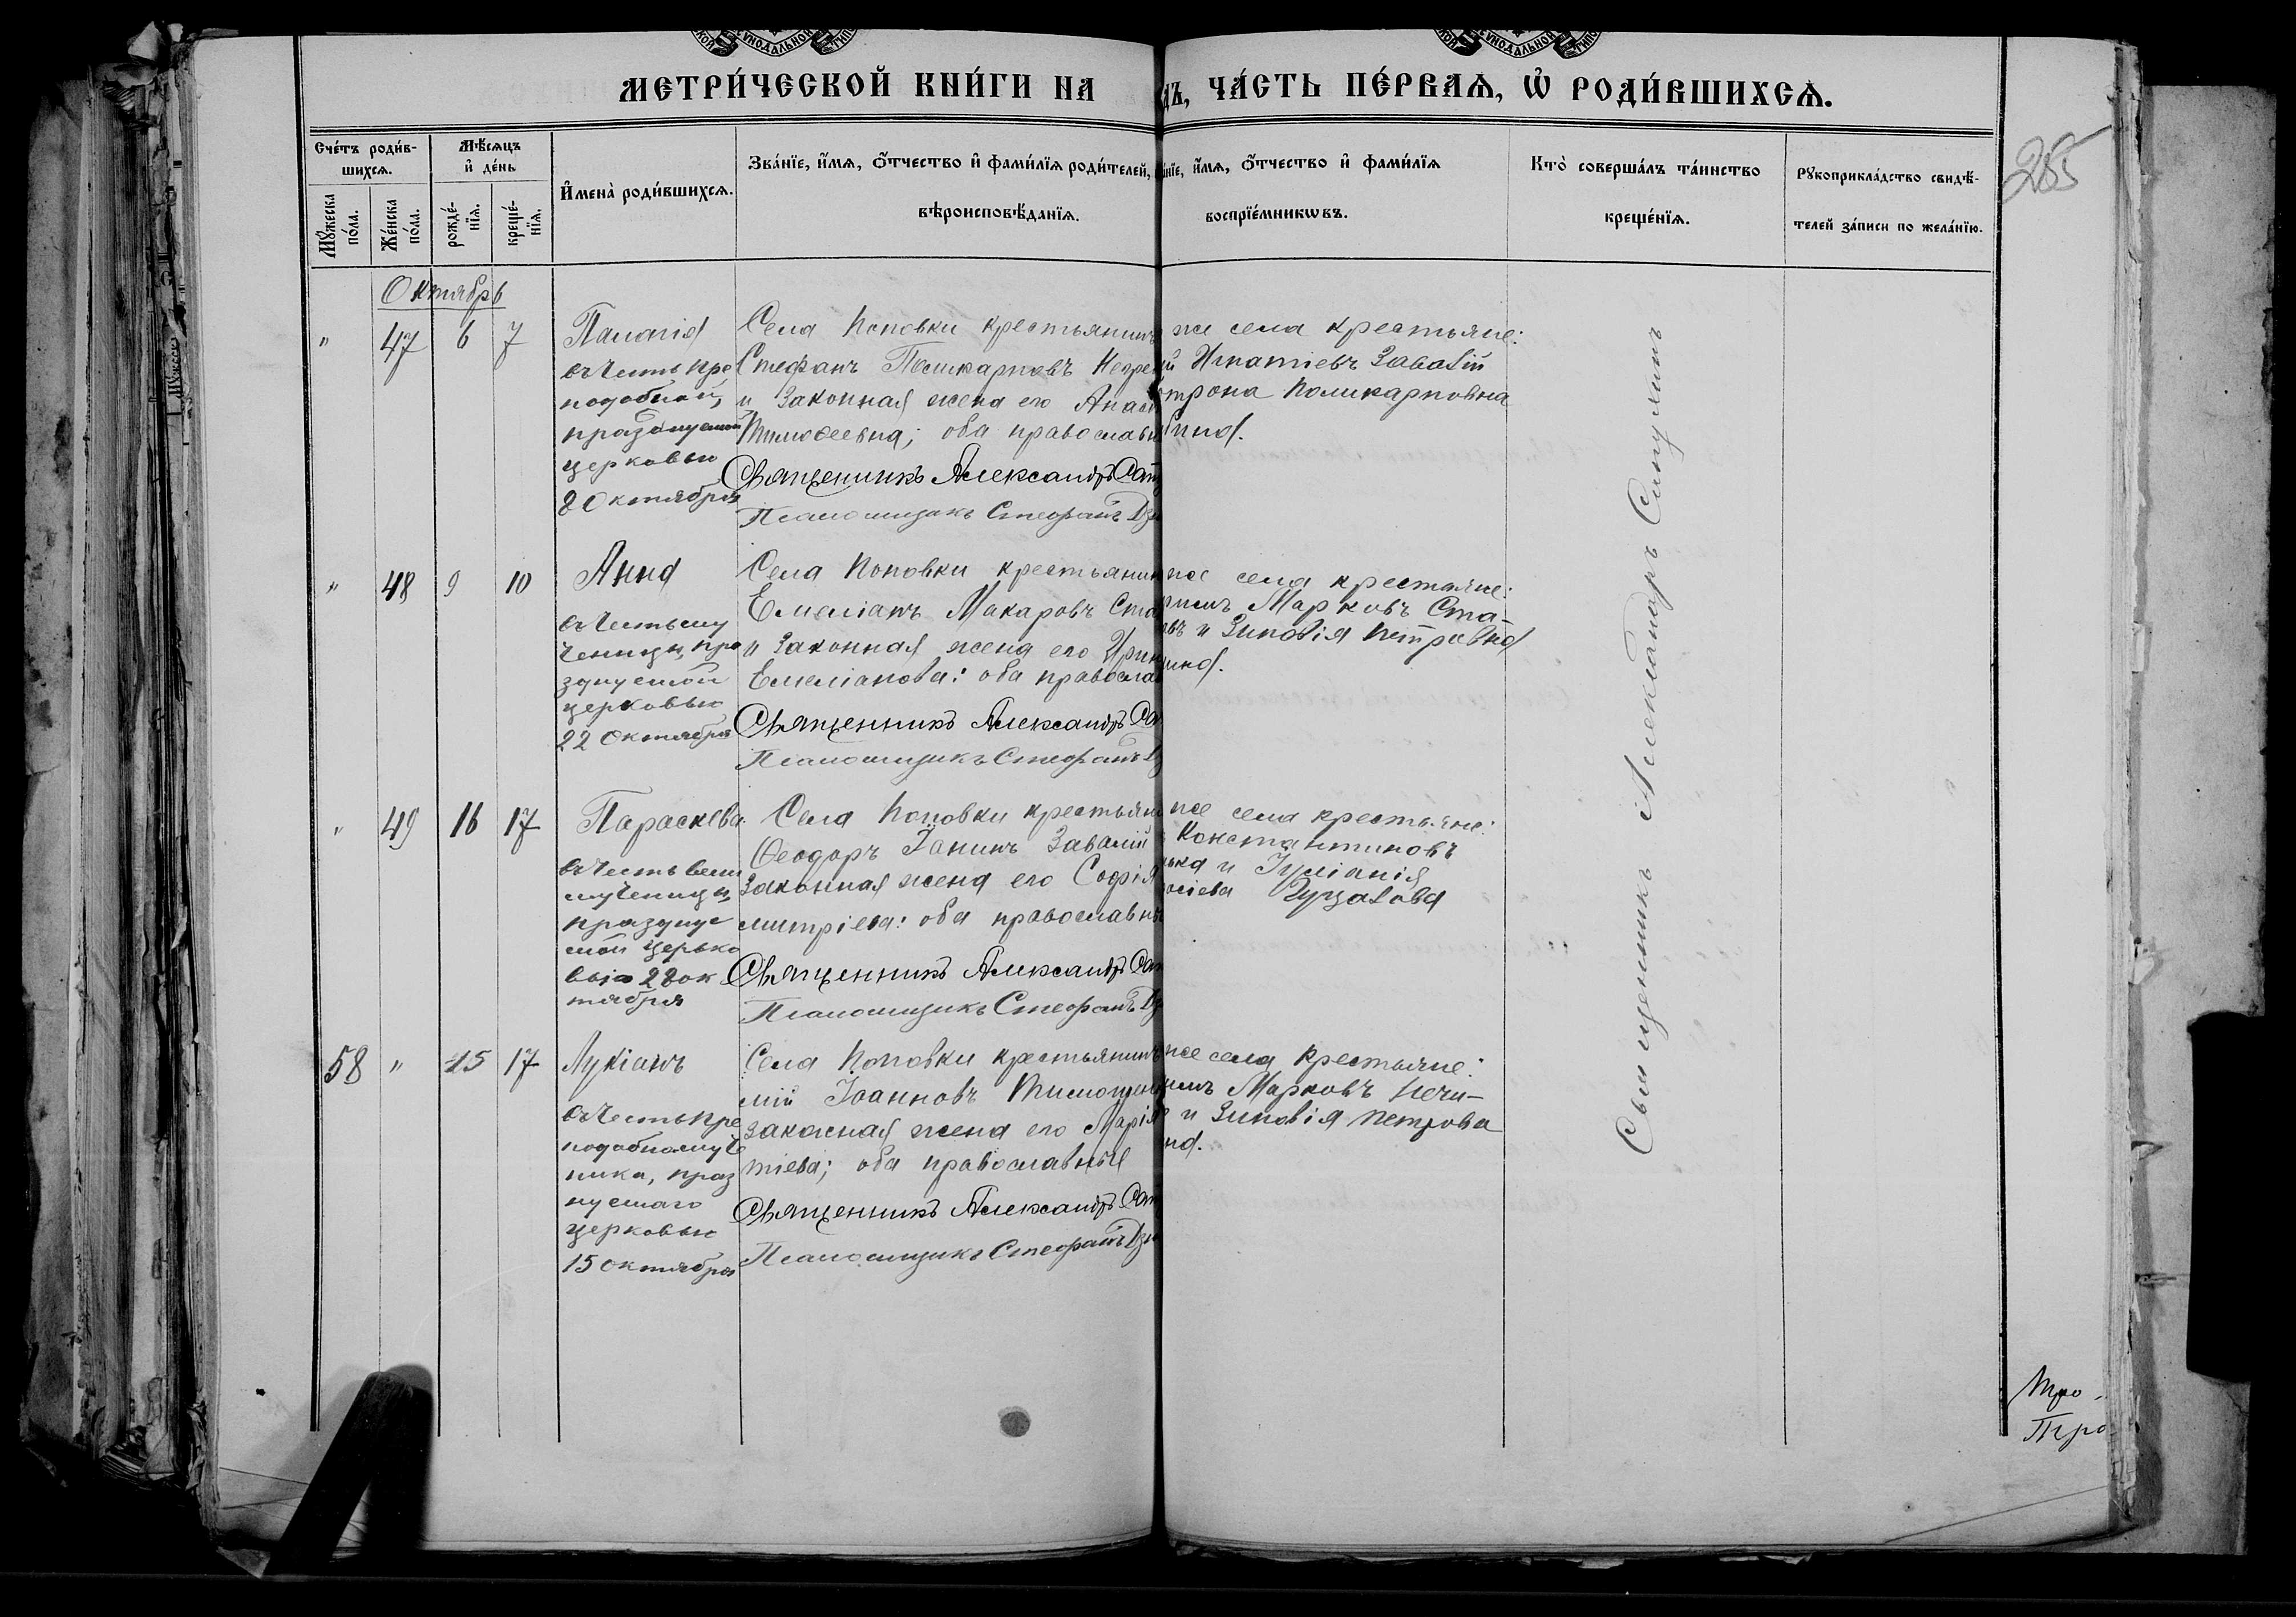 МЕТРИ́ЧЕСКОЙ КНИ́ГИ НА
ДЪ, ЧА́СТЬ ПЕ́РВАѦ, Ѡ҆ РОДИ́ВШИХСѦ.
Сче́тъ роди́в-
шихсѧ.
Мꙋ́жеска
по́ла.
Же́нска
по́ла.
Мѣ́сѧцъ
и҆ де́нь
рожде́-
нїѧ.
креще́-
нїѧ.
И҆мена̀ роди́вшихсѧ.
Зва́нїе, и҆́мѧ, ѻ҆́тчество и҆ фами́лїѧ роди́телей,
вѣроисповѣ́данїѧ.
и҆́мѧ, ѻ҆́тчество и҆ фами́лїѧ
воспрїе́мникѡвъ.
Кто̀ соверша́лъ та́инство
креще́нїѧ.
Рꙋкоприкла́дство свидѣ́-
телей за́писи по жела́нїю.
285
Октябрь
" 47 6 7
Палагія
въ честь пре
подобной,
празднуемой
церковью
8 Октября
Села Поповки крестьянинъ
Стефанъ Поликарповъ
и законная жена его
Тимоѳеевна; оба
Священникъ Александръ
Псаломщикъ Стефанъ
же села крестьяне:
Игнатіевъ Завалій
Поликарповна
" 48 9 10
Анна
въ честь му
ченицы, пра
зднуемой
церковью
22 Октября
Села Поповки
Емеліанъ Макаровъ
и законная жена его
Емеліанова: оба
Священникъ Александръ
Псаломщикъ Стефанъ
же села крестьяне:
Марковъ Ста-
и Зиновія Петровна
" 49 16 17
Параскева
въ честь вели
мученицы,
праздуе
мой церько
вью 28 ок
тября
Села Поповки
Ѳеодоръ Завалій
законная жена его Софія
митріева: оба
Священникъ Александръ
Псаломщикъ Стефанъ
же села крестьяне:
Константиновъ
и Іуліанія
58 " 15 17
Лукіанъ
въ честь пре
подобномуче
ника, праз
нуемаго
церковью
15 Октября
Села Поповки крестьянинъ
Іоанновъ
законная жена его Марія
тіева; оба православные
Священникъ Александръ
Псаломщикъ Стефанъ
же села крестьяне:
Марковъ Нечи-
и Зиновія Петрова
Священникъ Александръ